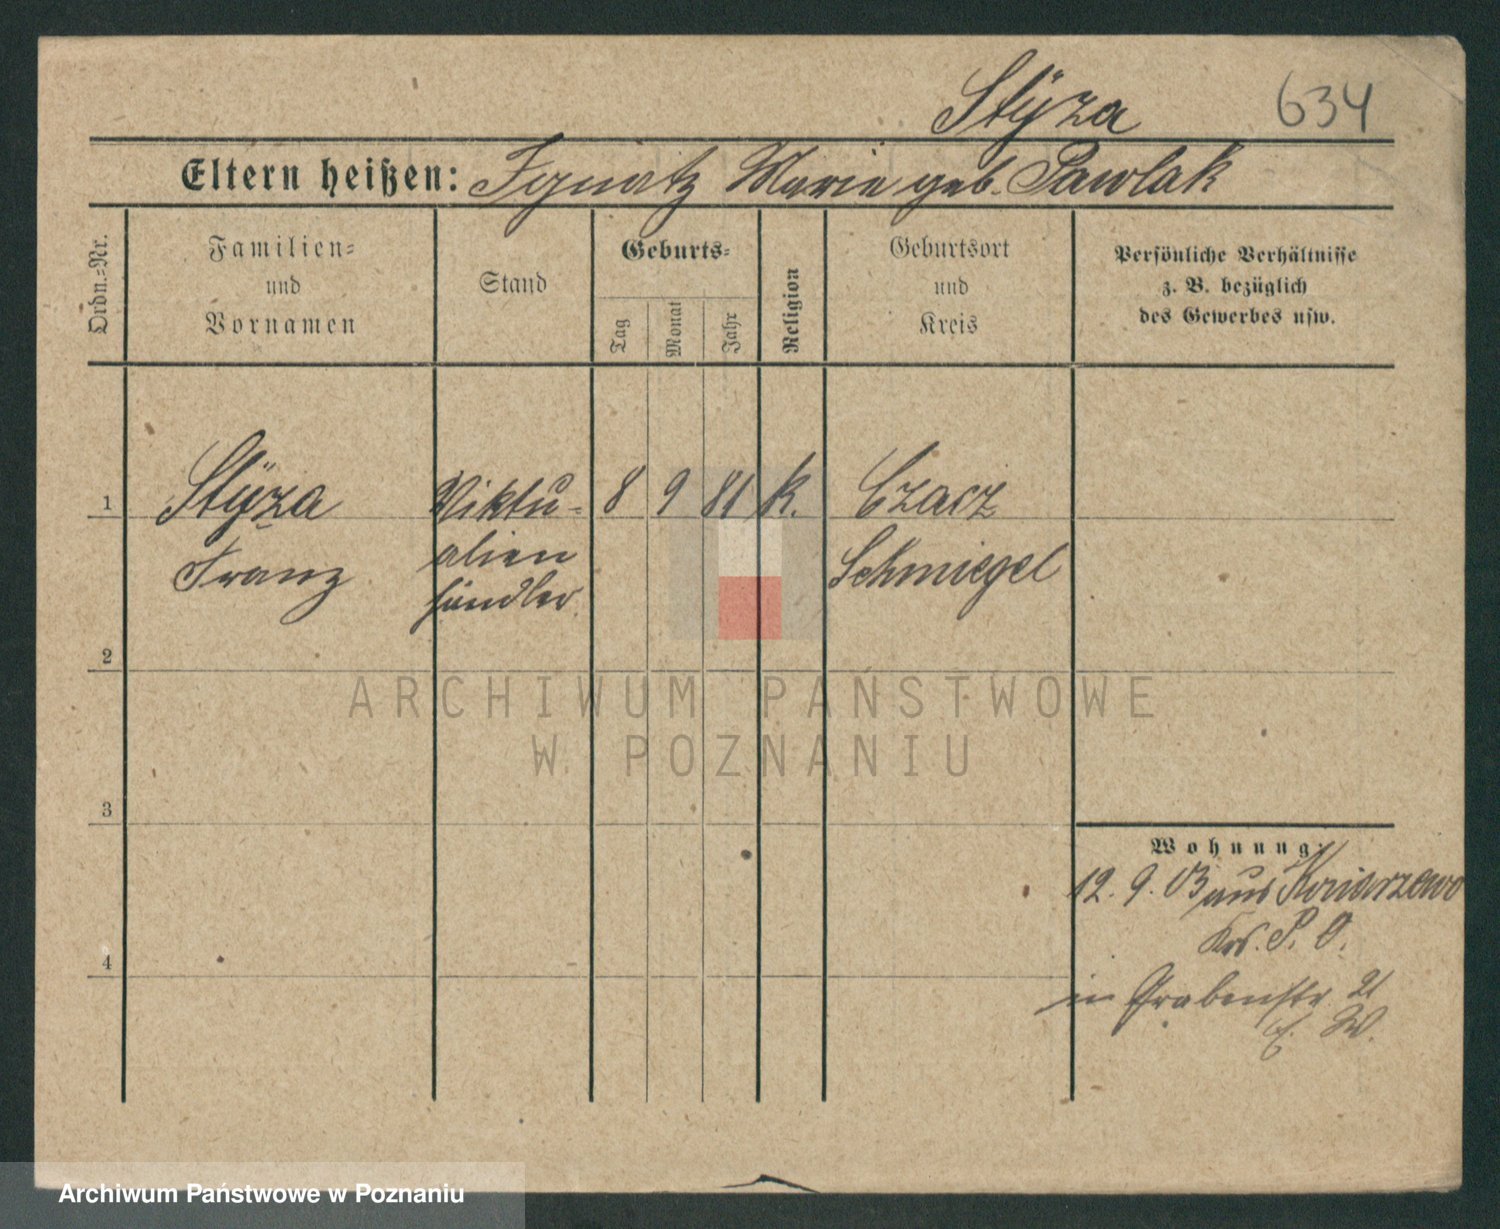 Stÿza 634
Eltern heißen: Ignatz Marie geb. Pawlak
Ordn.-Nr.
Familien-
und
Vornamen
Stand
Geburts-
Tag
Monat
Jahr
Religion
Geburtsort
und
Kreis
Persönliche Verhältnisse
z. B. bezüglich
des Gewerbes usw.
1 Stÿza Viktu- 8 9 81 k. Czacz
Franz alien Schmiegel
händler
2
ARCHIWUM PAŃSTWOWE
W POZNANIU
3
Wohnung:
12. 9. 03 aus
Krs. P. O.
4
in Grabenstr 21
E. W.
Archiwum Państwowe w Poznaniu